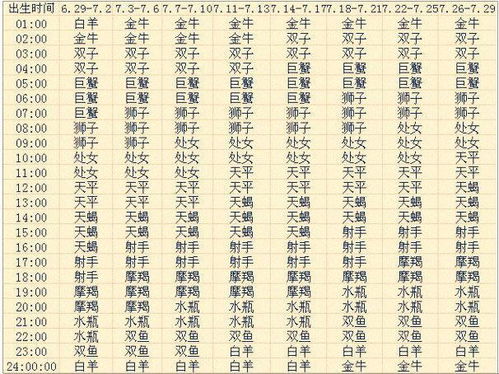 出生时间 6.29-7.2 7.3-7.6 7.7-7.10 7.11-7.13 7.14-7.17 7.18-7.21 7.22-7.25 7.26-7.29
01:00 白羊 金牛 金牛 金牛 金牛 金牛 金牛 金牛
02:00 金牛 金牛 金牛 金牛 双子 双子 双子 双子
03:00 双子 双子 双子 双子 双子 双子 双子 双子
04:00 双子 双子 双子 双子 巨蟹 巨蟹 巨蟹 巨蟹
05:00 巨蟹 巨蟹 巨蟹 巨蟹 巨蟹 巨蟹 巨蟹 巨蟹
06:00 巨蟹 巨蟹 巨蟹 巨蟹 巨蟹 狮子 狮子 狮子
07:00 巨蟹 狮子 狮子 狮子 狮子 狮子 狮子 狮子
08:00 狮子 狮子 狮子 狮子 狮子 狮子 处女 处女
09:00 狮子 狮子 处女 处女 处女 处女 处女 处女
10:00 处女 处女 处女 处女 处女 处女 处女 天平
11:00 处女 处女 处女 天平 天平 天平 天平 天平
12:00 天平 天平 天平 天平 天平 天平 天平 天蝎
13:00 天平 天平 天平 天蝎 天蝎 天蝎 天蝎 天蝎
14:00 天蝎 天蝎 天蝎 天蝎 天蝎 天蝎 天蝎 天蝎
15:00 天蝎 天蝎 天蝎 天蝎 天蝎 射手 射手 射手
16:00 天蝎 射手 射手 射手 射手 射手 射手 射手
17:00 射手 射手 射手 射手 射手 射手 摩羯 摩羯
18:00 射手 摩羯 摩羯 摩羯 摩羯 摩羯 摩羯 摩羯
19:00 摩羯 摩羯 摩羯 摩羯 水瓶 水瓶 水瓶 水瓶
20:00 摩羯 摩羯 水瓶 水瓶 水瓶 水瓶 水瓶 水瓶
21:00 水瓶 水瓶 水瓶 水瓶 水瓶 双鱼 双鱼 双鱼
22:00 水瓶 双鱼 双鱼 双鱼 双鱼 双鱼 双鱼 双鱼
23:00 双鱼 双鱼 双鱼 白羊 白羊 白羊 白羊 白羊
24:00:00 白羊 白羊 白羊 白羊 金牛 金牛 金牛 金牛